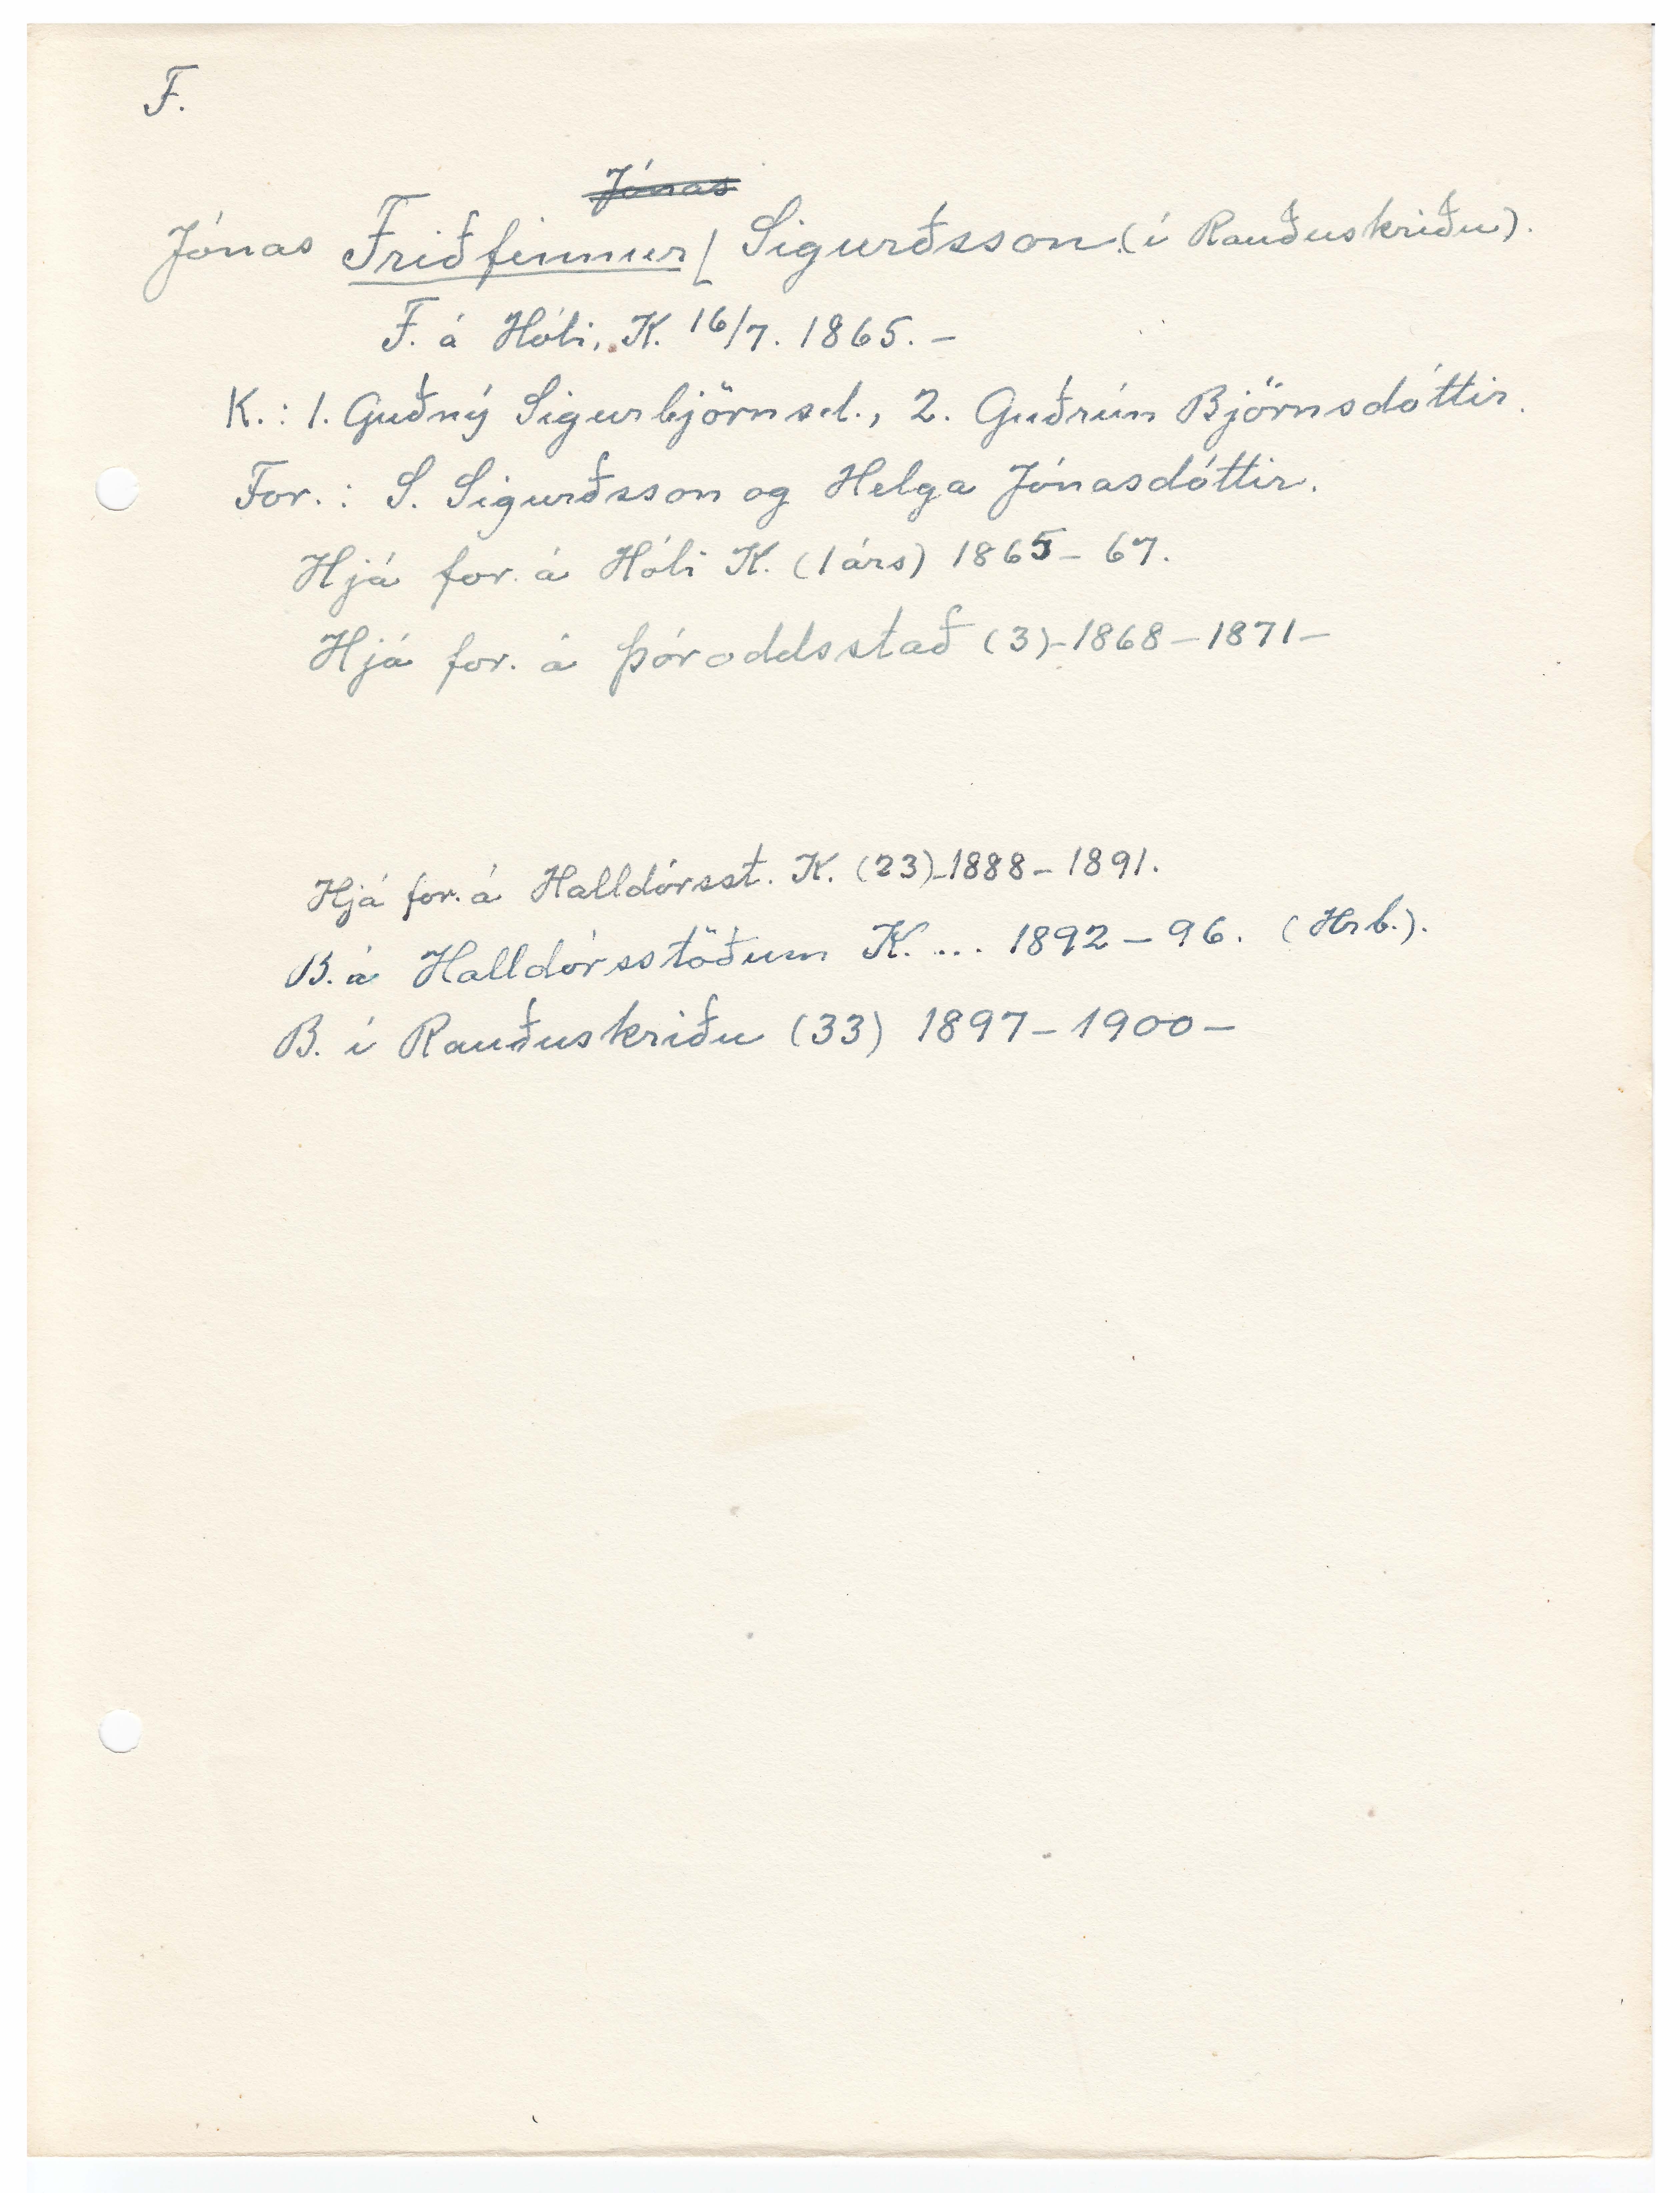 F.
Jónas
Jónas Friðfinnur / Sigurðsson (í Rauðuskriðu).
F. á Hóli, K. 16/7. 1865. –
K.: 1. Guðný Sigurbjörnsd., 2. Guðrún Björnsdóttir.
For.: S. Sigurðsson og Helga Jónasdóttir.
Hjá for. á Hóli K. (1 árs) 1865 – 67.
Hjá for. á Þóroddsstað (3) – 1868 – 1871 –
Hjá for. á Halldórsst. K. (23) – 1888 – 1891.
B. á Halldórsstöðum K. ... 1892 – 96. (Hrb.).
B. í Rauðuskriðu (33) 1897 – 1900 –